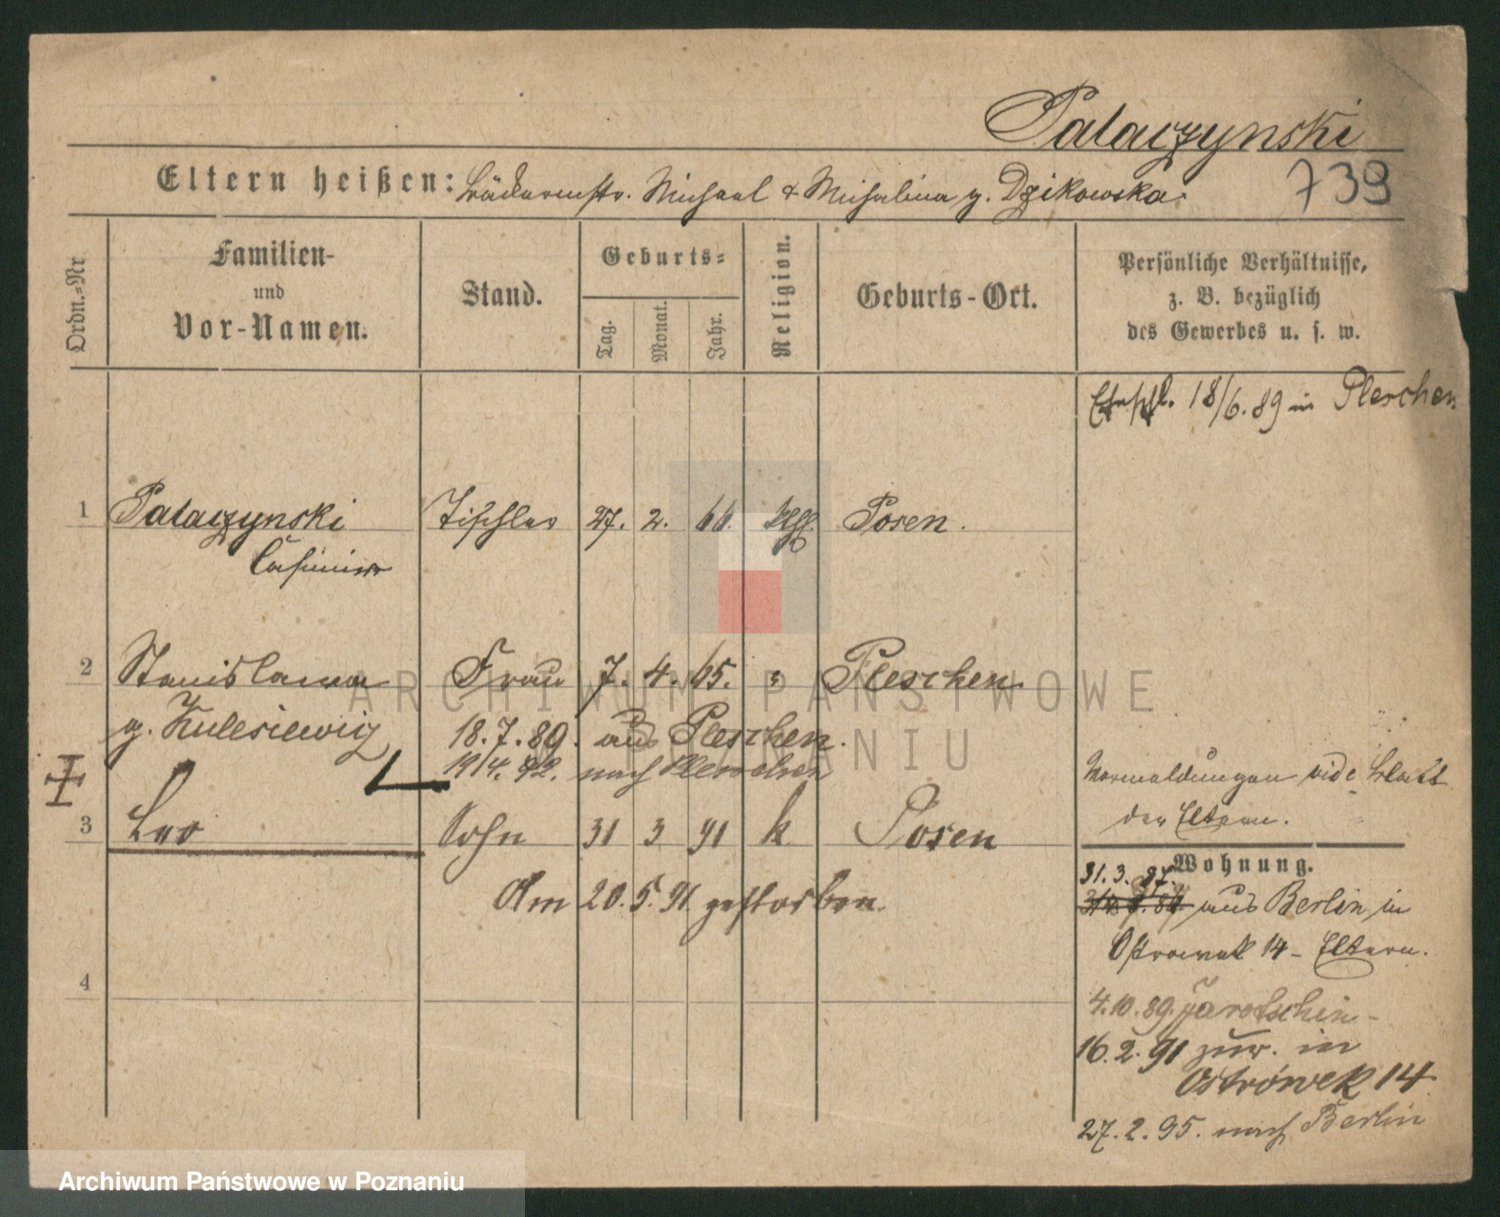 Palaczynski
739
Eltern heißen: Bäckermstr. Michael & Michalina g. Dzikowska.
Ordn.=Nr
Familien-
und
Vor-Namen.
Stand.
Geburts=
Tag.
Monat.
Jahr.
Religion.
Geburts-Ort.
Persönliche Verhältnisse,
z. B. bezüglich
des Gewerbes u. s. w.
18/6.89 in Pleschen
1 Palaczynski Tischler 27. 2. 66. Posen.
Casimir
2 Stanislawa Frau 7. 4. 65. Pleschen
g. Kulesiewicz 18.7.89. aus Pleschen.
19/4. 92. nach Pleschen
3 Leo Sohn 31 3 91 k Posen
Am 20. 5. 91. gestorben.
4
vide Blatt
der Eltern.
Wohnung.
31. 3. 87.
aus Berlin in
Ostrowek 14 - Eltern.
4.10.89. Jarotschin -
16.2.91 zur. in
Ostrówek 14
27.2.95. nach Berlin
ARCHIWUM PAŃSTWOWE
W POZNANIU
Archiwum Państwowe w Poznaniu